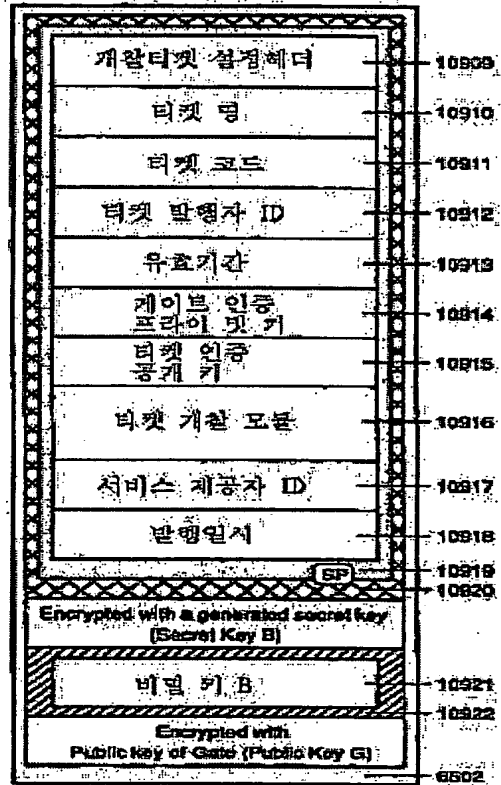 개찰티켓 설정헤더
10909
티켓 명
10910
티켓 코드
10911
티켓 발행자 ID
10912
유효기간
10913
게이트 인증
프라이 빗 키
10914
티켓 인증
공개 키
10915
티켓 개찰 모듈
10916
서비스 제공자 ID
10917
발행일시
10918
SP
10919
10920
Encrypted with a generated secret key
(Secret Key B)
비밀 키 B
10921
10922
Encrypted with
Public key of Gate (Public Key G)
6502